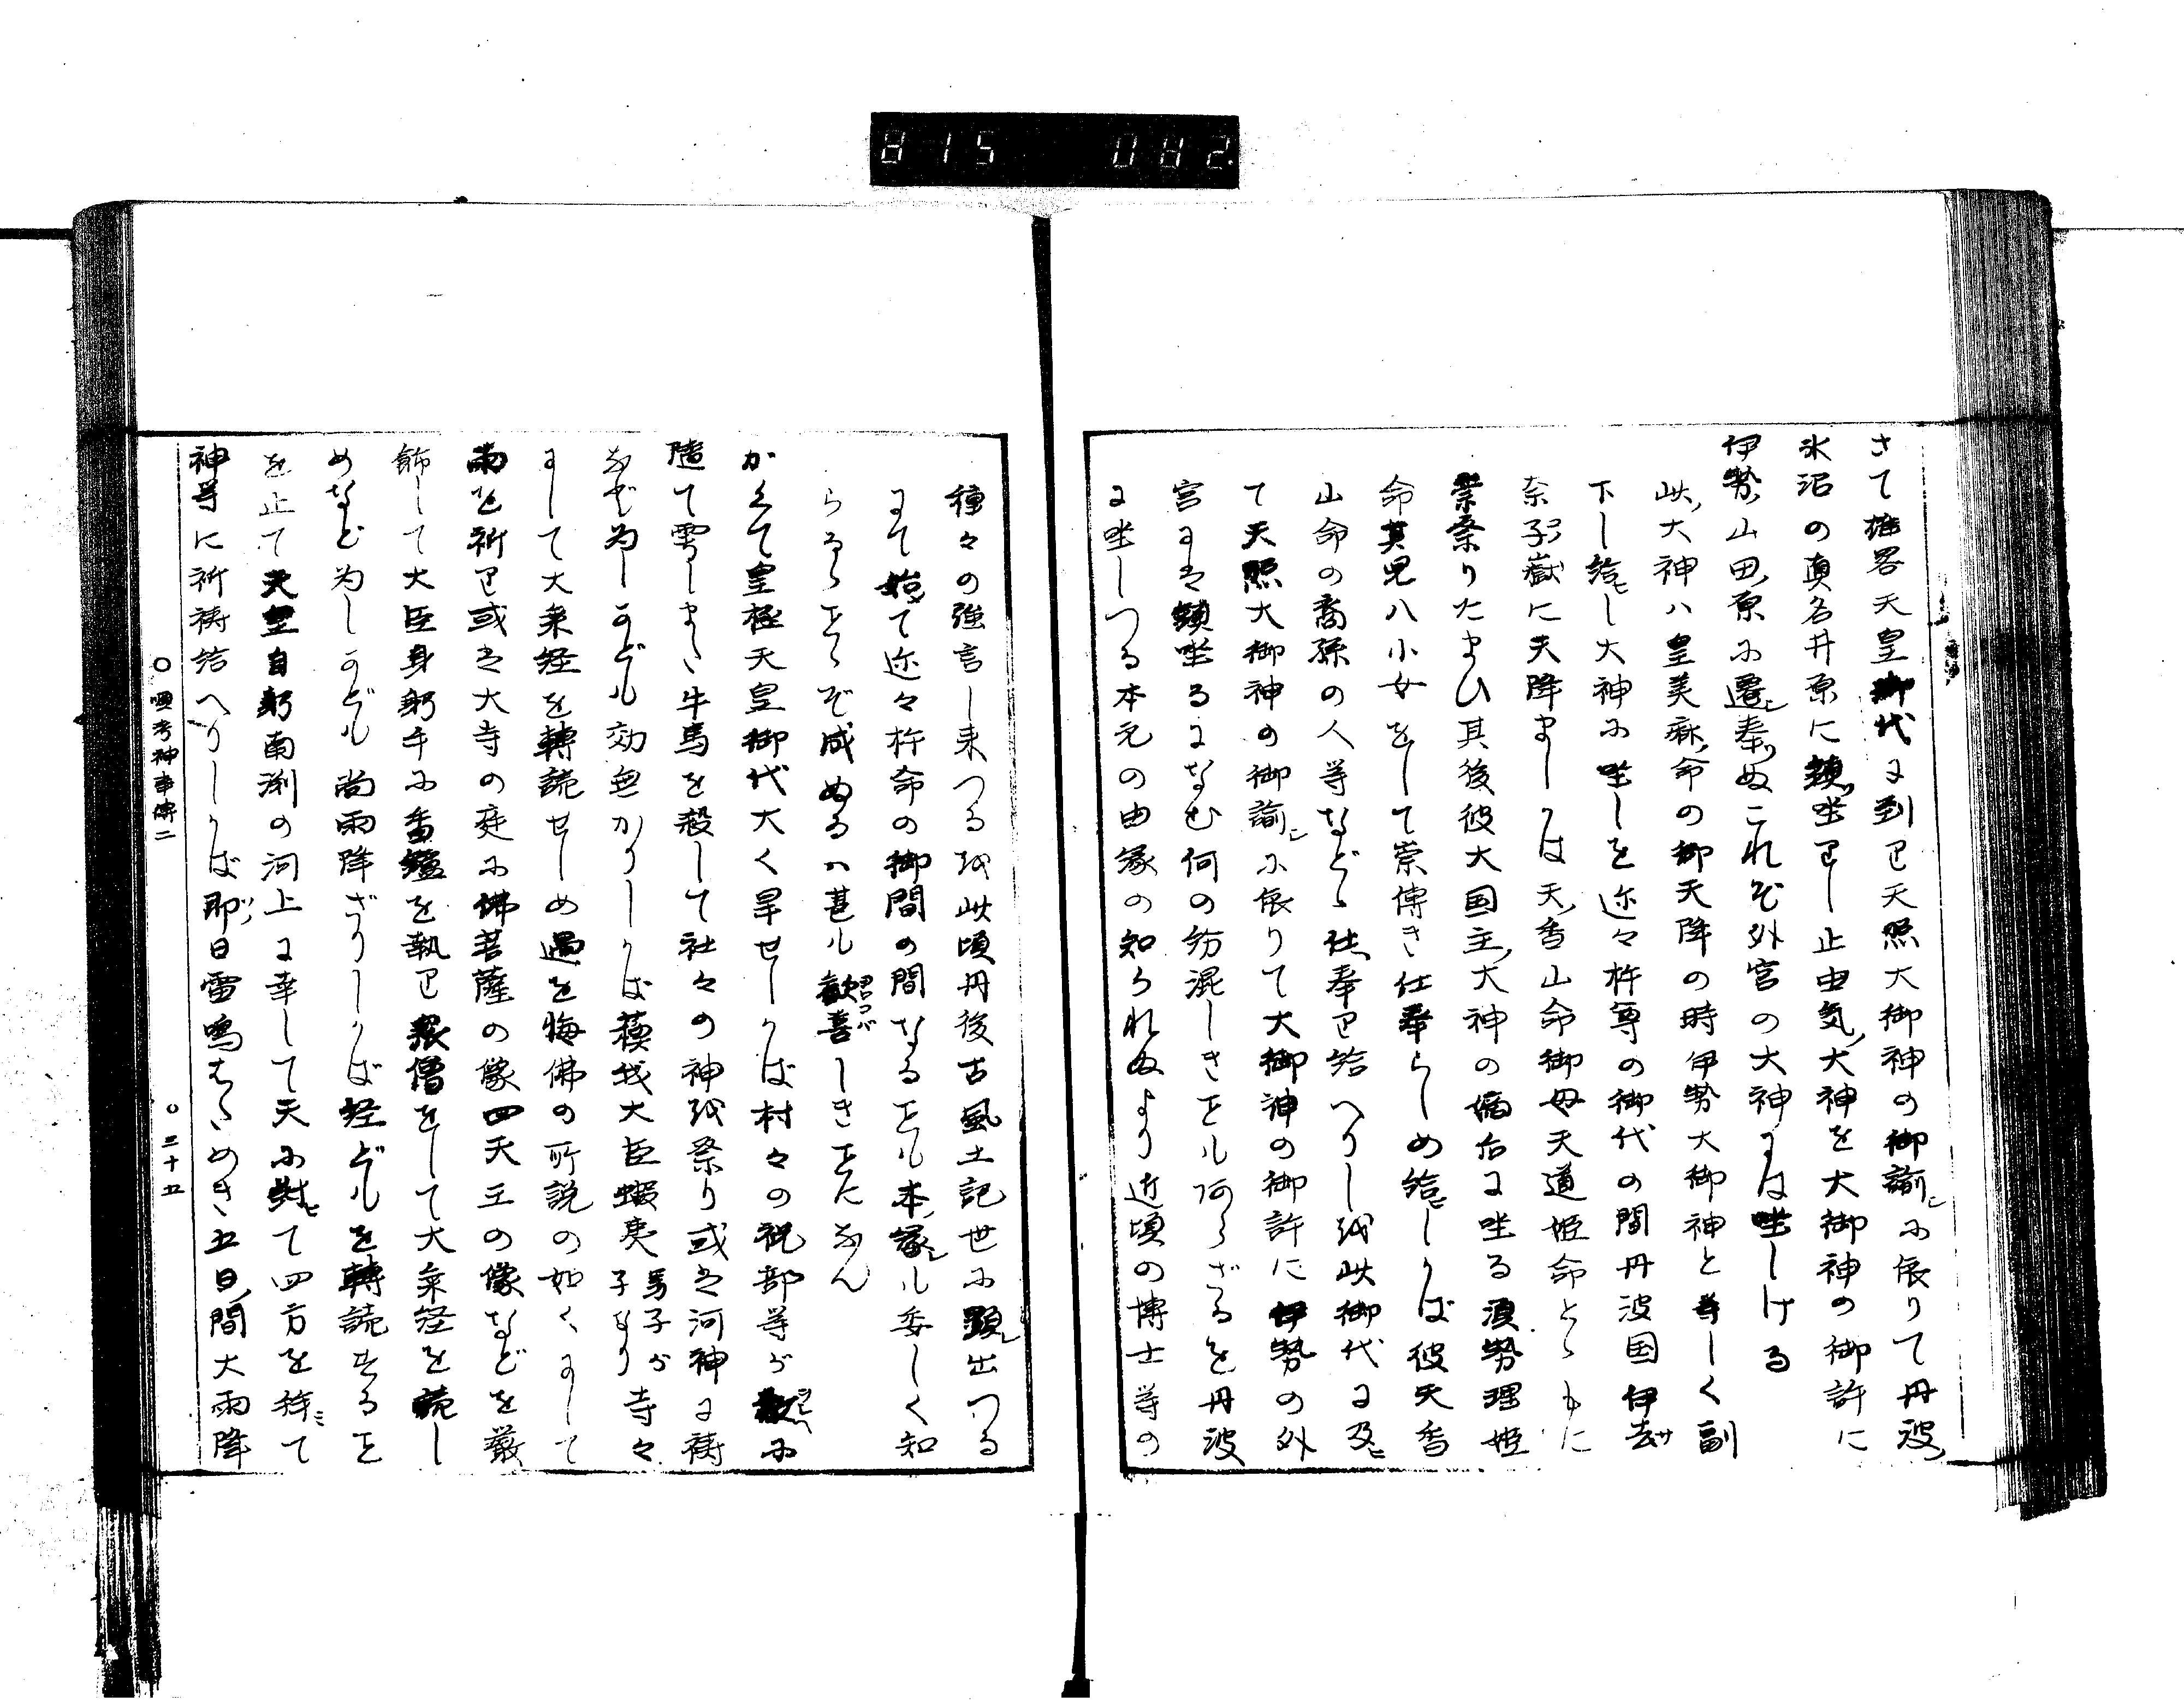 815 082
さて雄畧天皇御代に到り天照大御神の御諭に依りて丹波
氷沼の真名井原に鎮坐りし止由気大神を大御神の御許に
伊勢山田原に遷し奉りぬこれぞ外宮の大神には坐しける
此大神ハ皇美麻命の御天降の時伊勢大御神と等しく副
下し給ひし大神に坐しを迩々杵尊の御代の間丹波国伊去
奈子嶽に天降ましきは天香山命御母天道姫命とゝもに
崇祭りたまひ其後彼大国主大神の嫡后に坐る須勢理姫
命其児八小女をして崇傳き仕奉らしめ給ひしかば彼天香
山命の裔孫の人等などゝ仕奉り給へりしを此御代に及ひ
て天照大御神の御諭に依りて大御神の御許に伊勢の外
宮には鎮坐るになむ何の紛混しきことも阿らざるを丹波
に坐しつる本元の由縁の知られぬより近頃の博士等の
種々の強言し来つるを此頃丹後古風土記世に顕れ出つる
にて始めて迩々杵命の御間の間なることも本縁も委しく知
らるゝことゝぞ成ぬるハ甚も歓喜ヨロコバしきことになん
かくて皇極天皇御代大く旱せしかば村々の祝部等が教ヲシヘに
隨て雩しまた牛馬を殺して社々の神を祭り或は河神に祷
など為しかども効無かりしかば蘓我大臣蝦夷馬子が子なり寺々
にして大乗経を轉読せしめ過を悔佛の所説の如くにして
雨を祈り或は大寺の庭に佛菩薩の像四天王の像などを厳
餝して大臣身躬手に香鑪を執り衆僧をして大乗経を読し
めなど為しかども尚雨降ざりしかば経どもを轉読することを
を止て天皇自躬南淵の河上に幸して天に對ひて四方を拝みて
神等に祈祷給へりしかば即日雷鳴はためき五日間大雨降
○志考神事傳二
○三十五